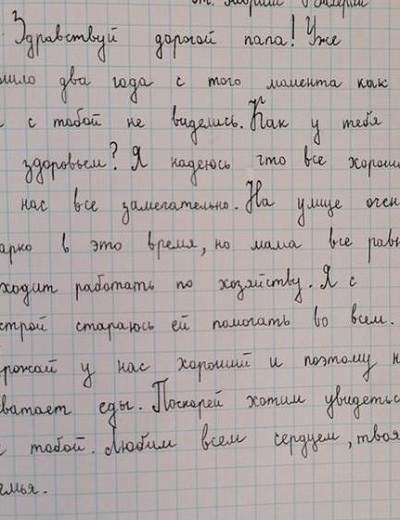 от:
Здравствуй дорогой папа! Уже
два года с того момента как
с тобой не виделись. Как у тебя
здоровьем? Я надеюсь что все хорош
нас все замечательно. На улице очен
арко в это время, но мама все рав
ходит работать по хозяйству. Я с
строй стараюсь ей помогать во всем.
рожай у нас хороший и поэтому н
ватает еды. Поскорей хотим увидеть
с тобой. Любим всем сердцем, твоя
емья.